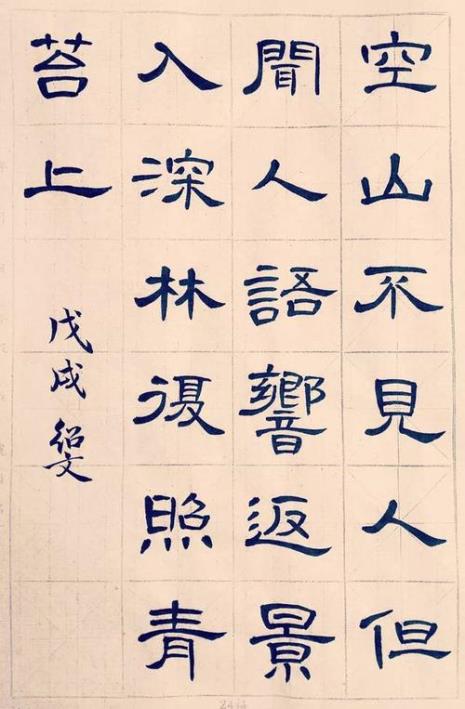 空山不見人但
聞人語響返景
入深林復照青
苔上
戊戌 紹文